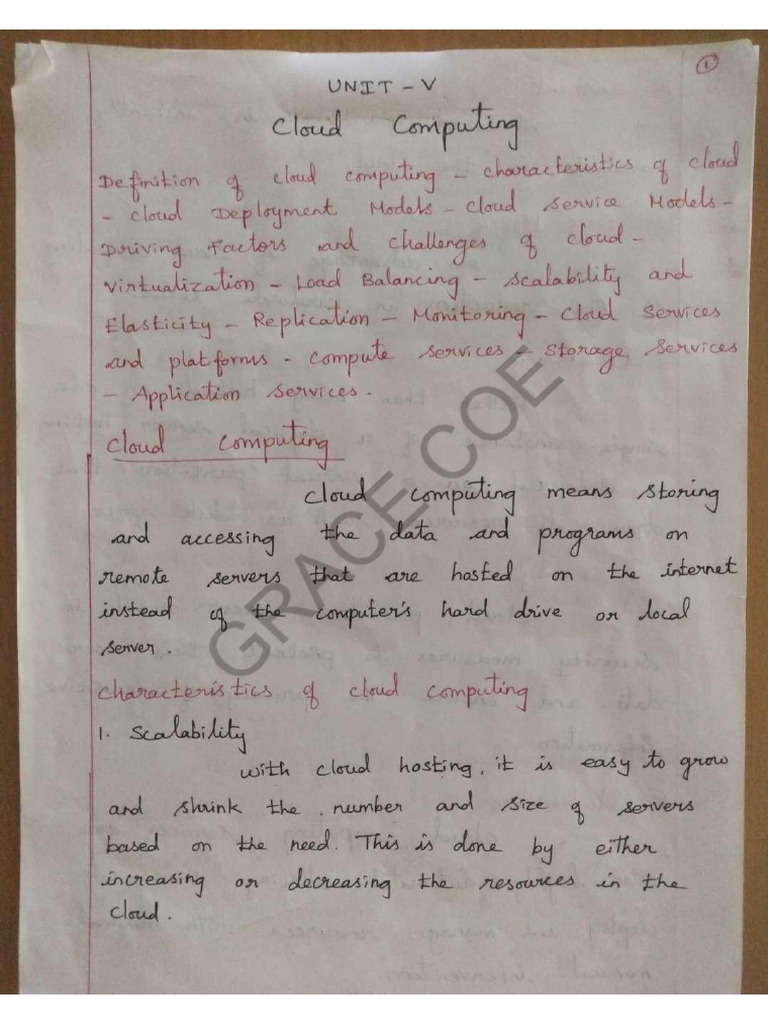 1
UNIT - V
Cloud Computing
Definition of cloud computing - characteristics of cloud
- Cloud Deployment Models - Cloud Service Models -
Driving Factors and challenges of cloud -
Virtualization - Load Balancing - Scalability and
Elasticity - Replication - Monitoring - Cloud Services
and platforms - Compute services - Storage Services
- Application Services.
Cloud Computing
Cloud computing means storing
and accessing the data and programs on
remote servers that are hosted on the internet
instead of the computer's hard drive or local
server.
GRACE COE
Characteristics of cloud computing
1. Scalability
With cloud hosting, it is easy to grow
and shrink the number and size of servers
based on the need. This is done by either
increasing or decreasing the resources in the
cloud.